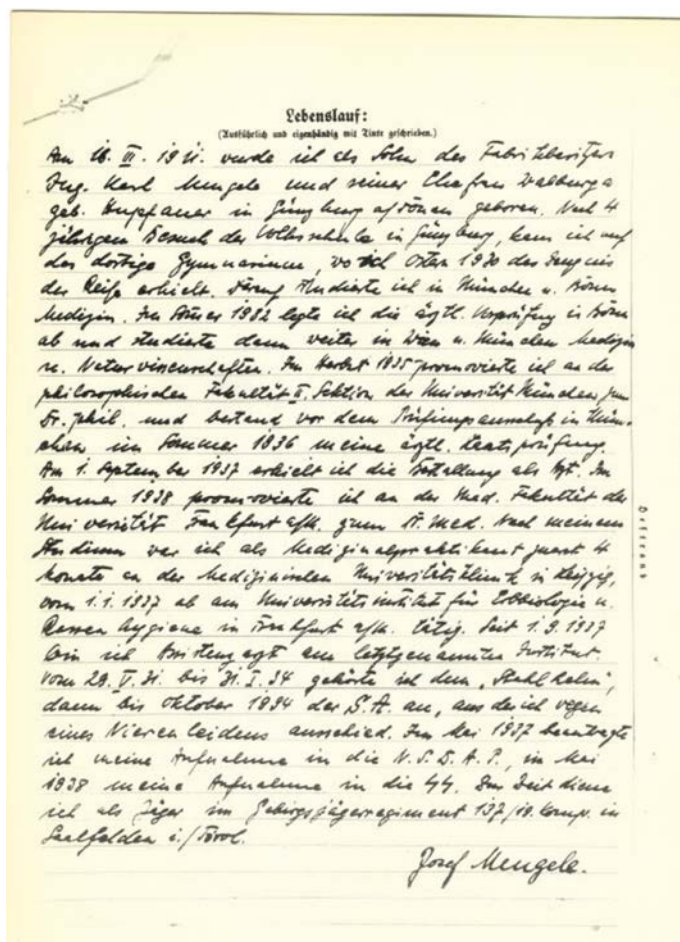 Lebenslauf:
(Ausführlich und eigenhändig mit Tinte geschrieben.)
Am 16. III. 1911. wurde ich als Sohn des Fabrikbesitzers
Ing. Karl Mengele und seiner Ehefrau Walburga
geb. Hupfauer in Günzburg a/Donau geboren. Nach 4
jährigem Besuch der Volksschule in Günzburg, kam ich auf
das dortige Gymnasium, wo ich Ostern 1930 das Zeugnis
der Reife erhielt. Darauf studierte ich in München u. Bonn
Medizin. Im Sommer 1932 legte ich die ärztl. Vorprüfung in Bonn
ab und studierte dann weiter in Wien u. München Medizin
u. Naturwissenschaften. Im Herbst 1935 promovierte ich an der
philosophischen Fakultät II. Sektion der Universität München zum
Dr. phil. und bestand vor dem Prüfungsausschuß in Mün-
chen im Sommer 1936 meine ärztl. Staatsprüfung.
Am 1. September 1937 erhielt ich die Bestallung als Arzt. Im
Sommer 1938 promovierte ich an der Med. Fakultät der
Universität Frankfurt a/M. zum Dr. med. Nach meinem
Studium war ich als Medizinalpraktikant zuerst 4
Monate an der Medizinischen Universitätsklinik in Leipzig,
vom 1.1.1937 ab am Universitätsinstitut für Erbbiologie u.
Rassenhygiene in Frankfurt a/M. tätig. Seit 1.9.1937
bin ich Assistenzarzt am letztgenannten Institut.
Vom 29. V. 31. bis 31. I. 34 gehörte ich dem „Stahlhelm“,
dann bis Oktober 1934 der S.A. an, aus der ich wegen
eines Nierenleidens ausschied. Im Mai 1937 beantragte
ich meine Aufnahme in die N.S.D.A.P., im Mai
1938 meine Aufnahme in die SS. Zur Zeit diene
ich als Jäger im Gebirgsjägerregiment 137/19. Komp. in
Saalfelden i./Tirol.
Josef Mengele.